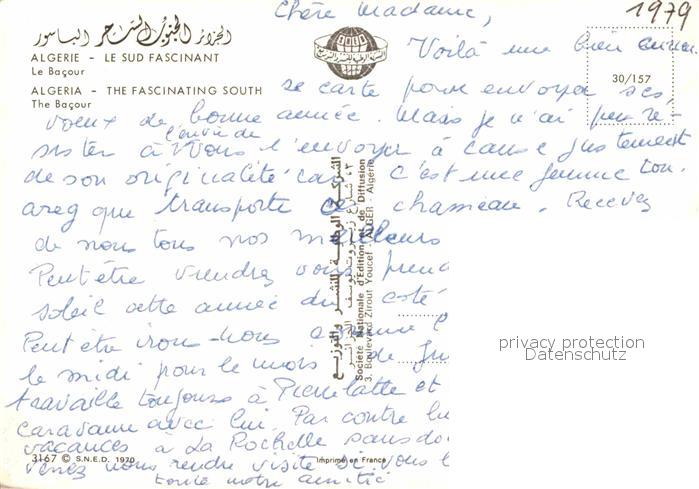 1979
الجزائر الجنوب الساحر الباسور
ALGERIE - LE SUD FASCINANT
Le Baçour
ALGERIA - THE FASCINATING SOUTH
The Baçour
30/157
Chère Madame,
Voilà une bien curieu
se carte pour envoyer ses
voeux de bonne année. Mais je n'ai pu ré-
sister à l'envie de vous l'envoyer à cause justement
de son originalité car c'est une femme tou.
areg que transporte ce chameau. Recevez
de nous tous nos meilleurs
Peut être viendrez vous prend
soleil cette année du côté
Peut être irons-nous
le midi pour le mois de Ju
travaille toujours à Pierrelatte et
caravane avec lui. Par contre
vacances à La Rochelle sans do
venez nous rendre visite si vous
toute notre amitié
الشركة الوطنية للنشر والتوزيع
3 شارع زيروت يوسف الجزائر
Société Nationale d'Edition et de Diffusion
3, Boulevard Zirout Youcef - ALGER - Algérie
3167 © S.N.E.D. 1970
Imprimé en France
privacy protection
Datenschutz